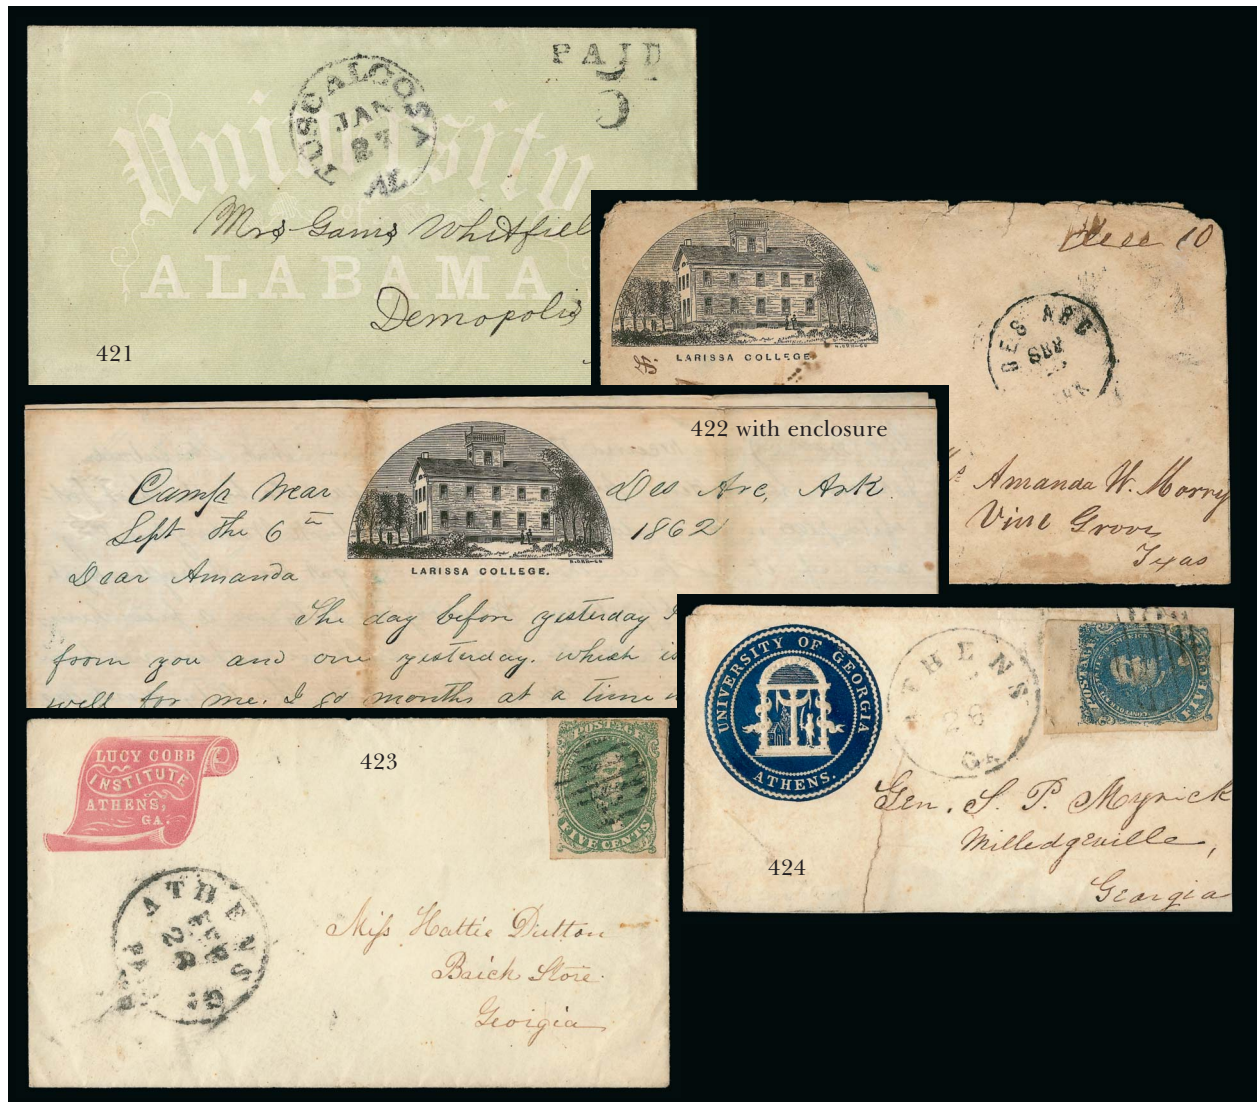 PAID
5
TUSCALOOSA
JAN
27
AL
University
ALABAMA
Mrs Gams Whitfiel
Demopolis
421
LARISSA COLLEGE.
Due 10
DES ARC
SEP
ARK
Amanda W. Morry
Vine Grove
Texas
422 with enclosure
Camp Near Des Arc, Ark.
Sept the 6th 1862
LARISSA COLLEGE.
Dear Amanda
The day before yesterday I
from you and one yesterday. which is
well for me. I go months at a time
LUCY COBB
INSTITUTE
ATHENS,
GA.
423
POSTAGE
FIVE CENTS
ATHENS
FEB
28
GA
Miss Hattie Dutton
Baich Store
Georgia
UNIVERSITY OF GEORGIA
ATHENS.
ATHENS
26
GA
Gen. S. P. Myrick
Milledgeville,
Georgia
424